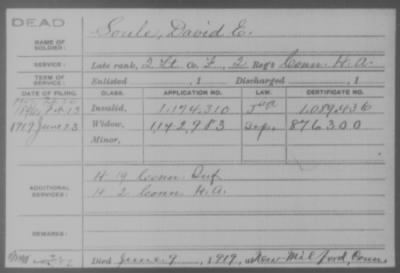 DEAD
NAME OF SOLDIER: Soule, David E.
SERVICE: Late rank, 2 Lt. Co. F, 2 Reg't Conn. H. A.
TERM OF SERVICE: Enlisted , 1 Discharged , 1
DATE OF FILING. CLASS. APPLICATION NO. LAW. CERTIFICATE NO.
Invalid, 1.174.310 1.089.436
1919 June 23 Widow, 1,142,983 876.300
Minor,
ADDITIONAL SERVICES: H 19 Conn. Inf
H 2 Conn. H.A.
REMARKS:
Died June 9, 1919, at New Milford, Conn